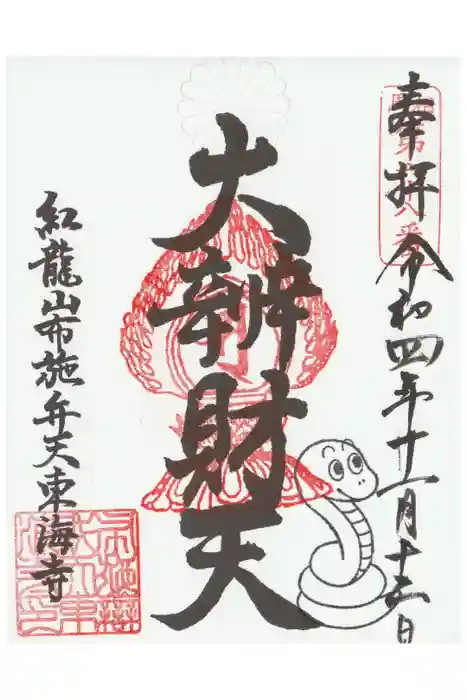 奉拝 令和四年十一月十三日
大辨財天
紅龍山布施弁天東海寺